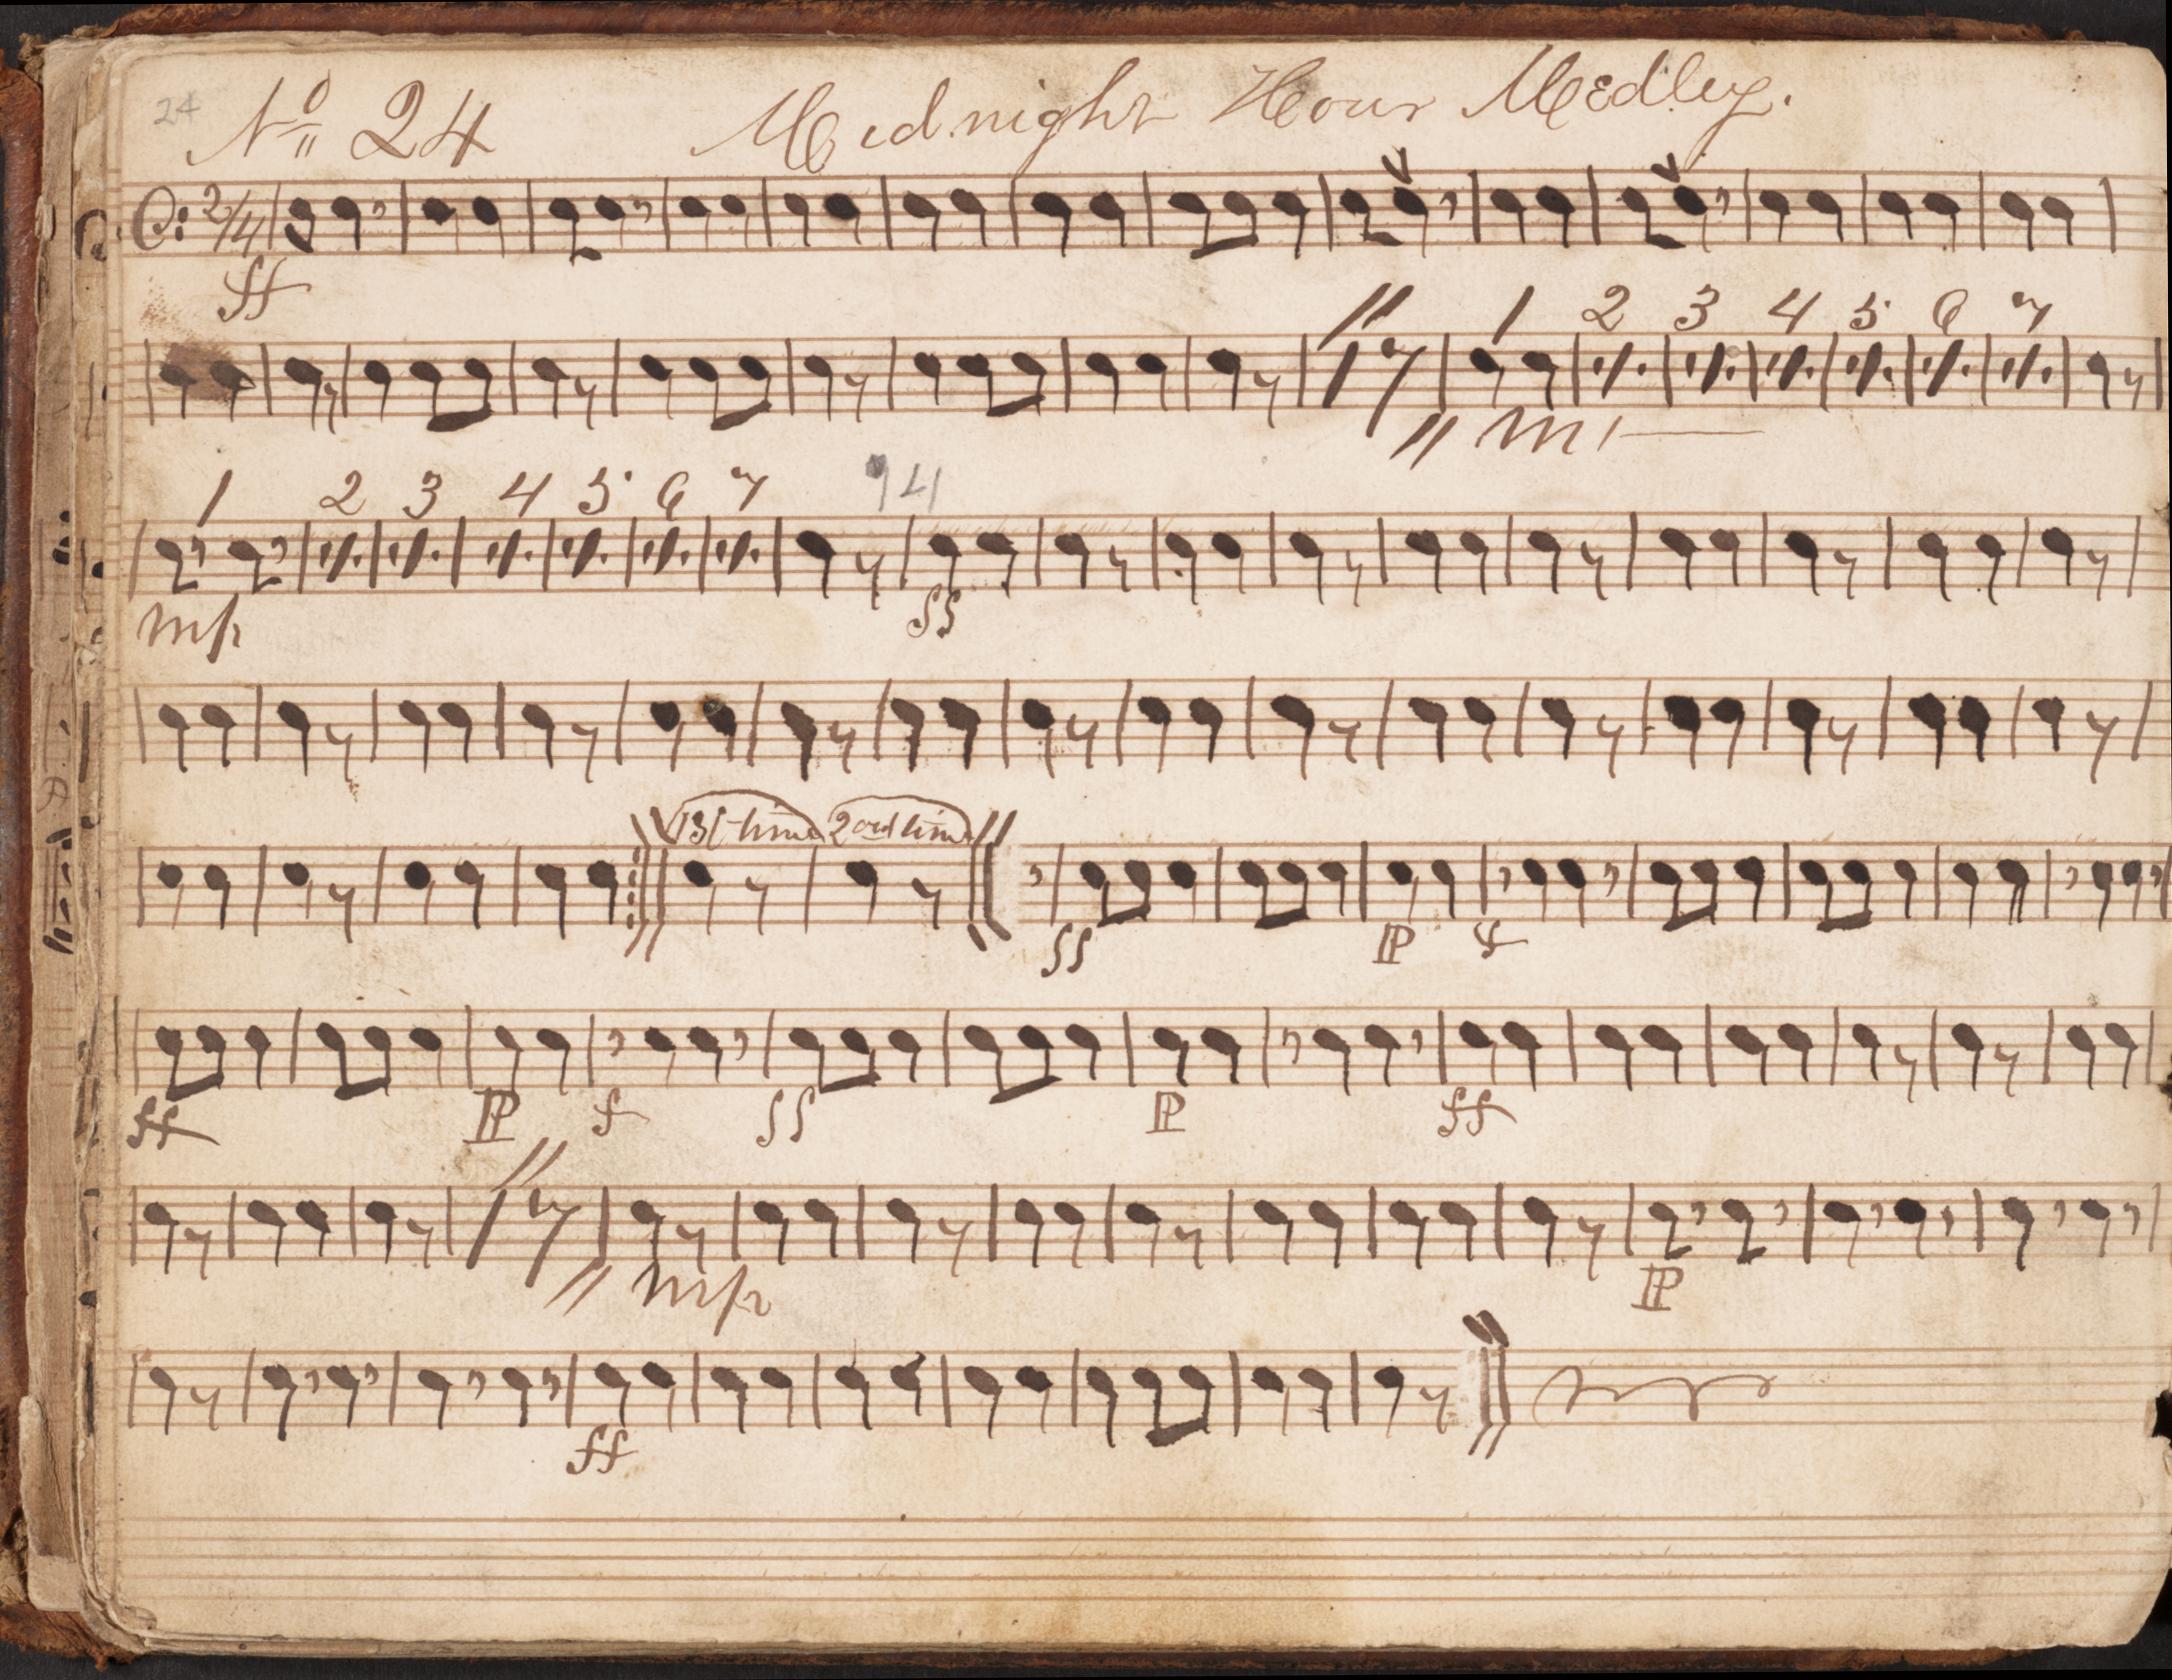 24 No 24 Midnight Hour Medley.
2/4
ff
1 2 3 4 5 6 7
1 2 3 4 5 6 7
mp ff
1st time 2nd time
ff P f
ff P f ff P ff
mp P
ff